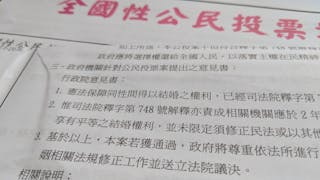 全國性公民投票
政府應將選擇權還給全國人民，以落實主權在民精神
三、政府機關針對公民投票案提出之意見書：
行政院意見書：
1. 憲法保障同性間得以結婚之權利，已經司法院釋字第7
2. 惟司法院釋字第 748 號解釋亦責成相關機關應於 2 年
享有平等之結婚權利，並未限定須修正民法或以其他
3. 基於以上，本案若獲通過，政府將尊重依法所進行
姻相關法規修正工作並送立法院議決。
相關說明：